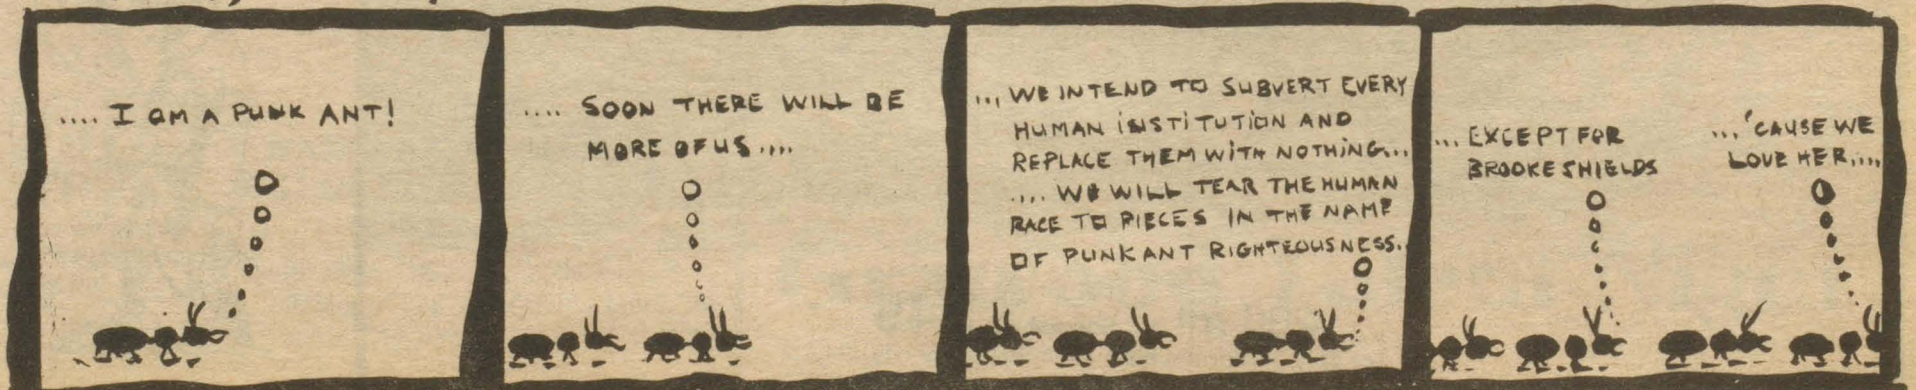 .... I AM A PUNK ANT!
.... SOON THERE WILL BE
MORE OF US....
... WE INTEND TO SUBVERT EVERY
HUMAN INSTITUTION AND
REPLACE THEM WITH NOTHING...
.... WE WILL TEAR THE HUMAN
RACE TO PIECES IN THE NAME
OF PUNK ANT RIGHTEOUSNESS.
... EXCEPT FOR
BROOKE SHIELDS
... 'CAUSE WE
LOVE HER....